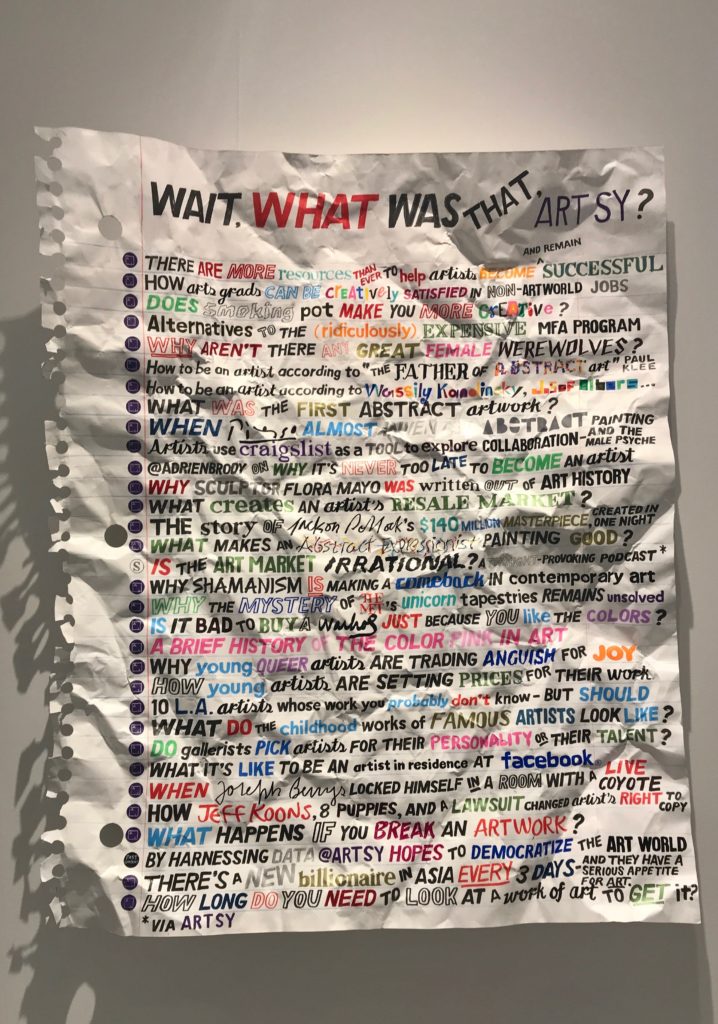 WAIT, WHAT WAS THAT, ARTSY?
AND REMAIN
THERE ARE MORE resources THAN EVER TO help artists BECOME ^ SUCCESSFUL
HOW arts grads CAN BE creatively SATISFIED IN NON-ARTWORLD JOBS
DOES smoking pot MAKE YOU MORE CREATive?
Alternatives TO THE (ridiculously) EXPENSIVE MFA PROGRAM
WHY AREN'T THERE ANY GREAT FEMALE WEREWOLVES?
How to be an artist according to "THE FATHER OF ABSTRACT art" PAUL KLEE
How to be an artist according to Wassily Kandinsky, Josef Albers...
WHAT WAS THE FIRST ABSTRACT artwork?
WHEN ALMOST ABSTRACT PAINTING
Artists use craigslist as a TOOL to explore COLLABORATION- AND THE MALE PSYCHE
@ADRIENBRODY ON WHY IT'S NEVER TOO LATE TO BECOME AN artist
WHY SCULPTOR FLORA MAYO WAS written OUT OF ART HISTORY
WHAT creates AN artist's RESALE MARKET?
THE story OF Jackson Pollock's $140 MILLION MASTERPIECE, CREATED IN ONE NIGHT
WHAT MAKES AN Abstract Expressionist PAINTING GOOD?
S IS THE ART MARKET IRRATIONAL? A THOUGHT-PROVOKING PODCAST*
WHY SHAMANISM IS MAKING A comeback IN contemporary art
WHY THE MYSTERY OF THE MET'S unicorn tapestries REMAINS unsolved
IS IT BAD TO BUY A Warhol JUST BECAUSE YOU like THE COLORS?
A BRIEF HISTORY OF THE COLOR PINK IN ART
WHY young QUEER artists ARE TRADING ANGUISH FOR JOY
HOW young artists ARE SETTING PRICES FOR THEIR work
10 L.A. artists whose work you probably don't know - BUT SHOULD
WHAT DO THE childhood works of FAMOUS ARTISTS LOOK LIKE?
DO gallerists PICK artists FOR THEIR PERSONALITY OR THEIR TALENT?
WHAT IT'S LIKE TO BE AN artist in residence AT facebook
WHEN Joseph Beuys LOCKED HIMSELF IN A ROOM WITH A LIVE COYOTE
HOW JEFF KOONS, 8 PUPPIES, AND A LAWSUIT CHANGED artist's RIGHT TO COPY
WHAT HAPPENS IF YOU BREAK AN ARTWORK?
BY HARNESSING DATA @ARTSY HOPES TO DEMOCRATIZE THE ART WORLD
THERE'S A NEW billionaire IN ASIA EVERY 3 DAYS - AND THEY HAVE A SERIOUS APPETITE FOR ART.
HOW LONG DO YOU NEED TO LOOK AT A work of art TO GET it?
*VIA ARTSY